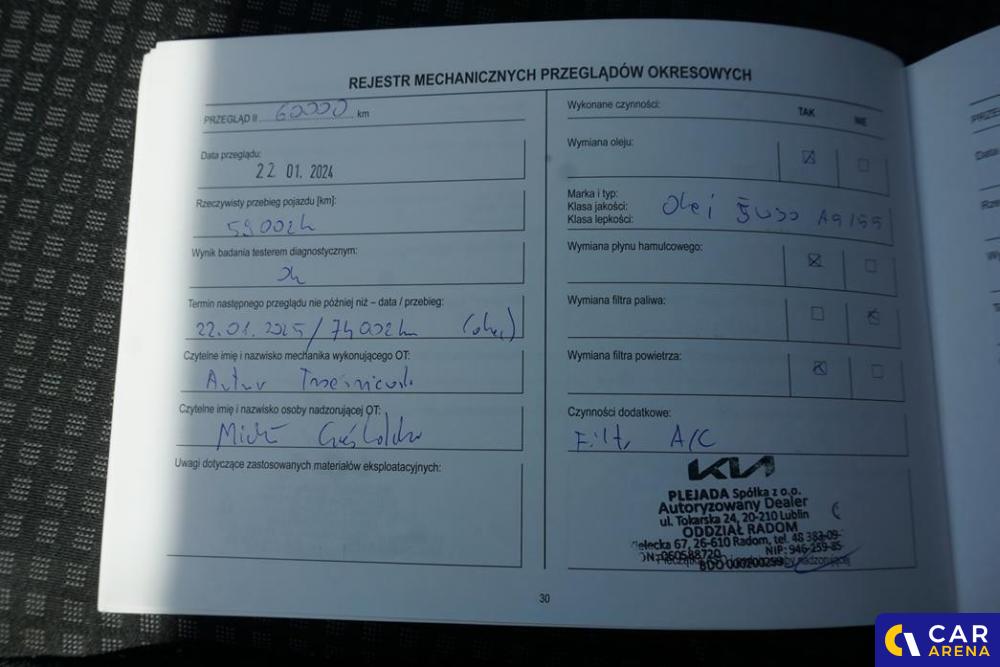 REJESTR MECHANICZNYCH PRZEGLĄDÓW OKRESOWYCH
PRZEGLĄD II 60000 km
Data przeglądu:
22 01. 2024
Rzeczywisty przebieg pojazdu [km]:
59002km
Wynik badania testerem diagnostycznym:
Ok
Termin następnego przeglądu nie później niż – data / przebieg:
22.01.2025/74002km (olej)
Czytelne imię i nazwisko mechanika wykonującego OT:
Artur
Czytelne imię i nazwisko osoby nadzorującej OT:
Uwagi dotyczące zastosowanych materiałów eksploatacyjnych:
Wykonane czynności:
TAK NIE
Wymiana oleju:
Marka i typ:
Klasa jakości:
Klasa lepkości:
Olej 5W30 A5/B5
Wymiana płynu hamulcowego:
Wymiana filtra paliwa:
Wymiana filtra powietrza:
Czynności dodatkowe:
Filtr A/C
KIA
PLEJADA Spółka z o.o.
Autoryzowany Dealer
ul. Tokarska 24, 20-210 Lublin
ODDZIAŁ RADOM
67, 26-610 Radom, tel. 48 383-09-
NIP: 946-259-85
BDO 000200299
30
CAR
ARENA